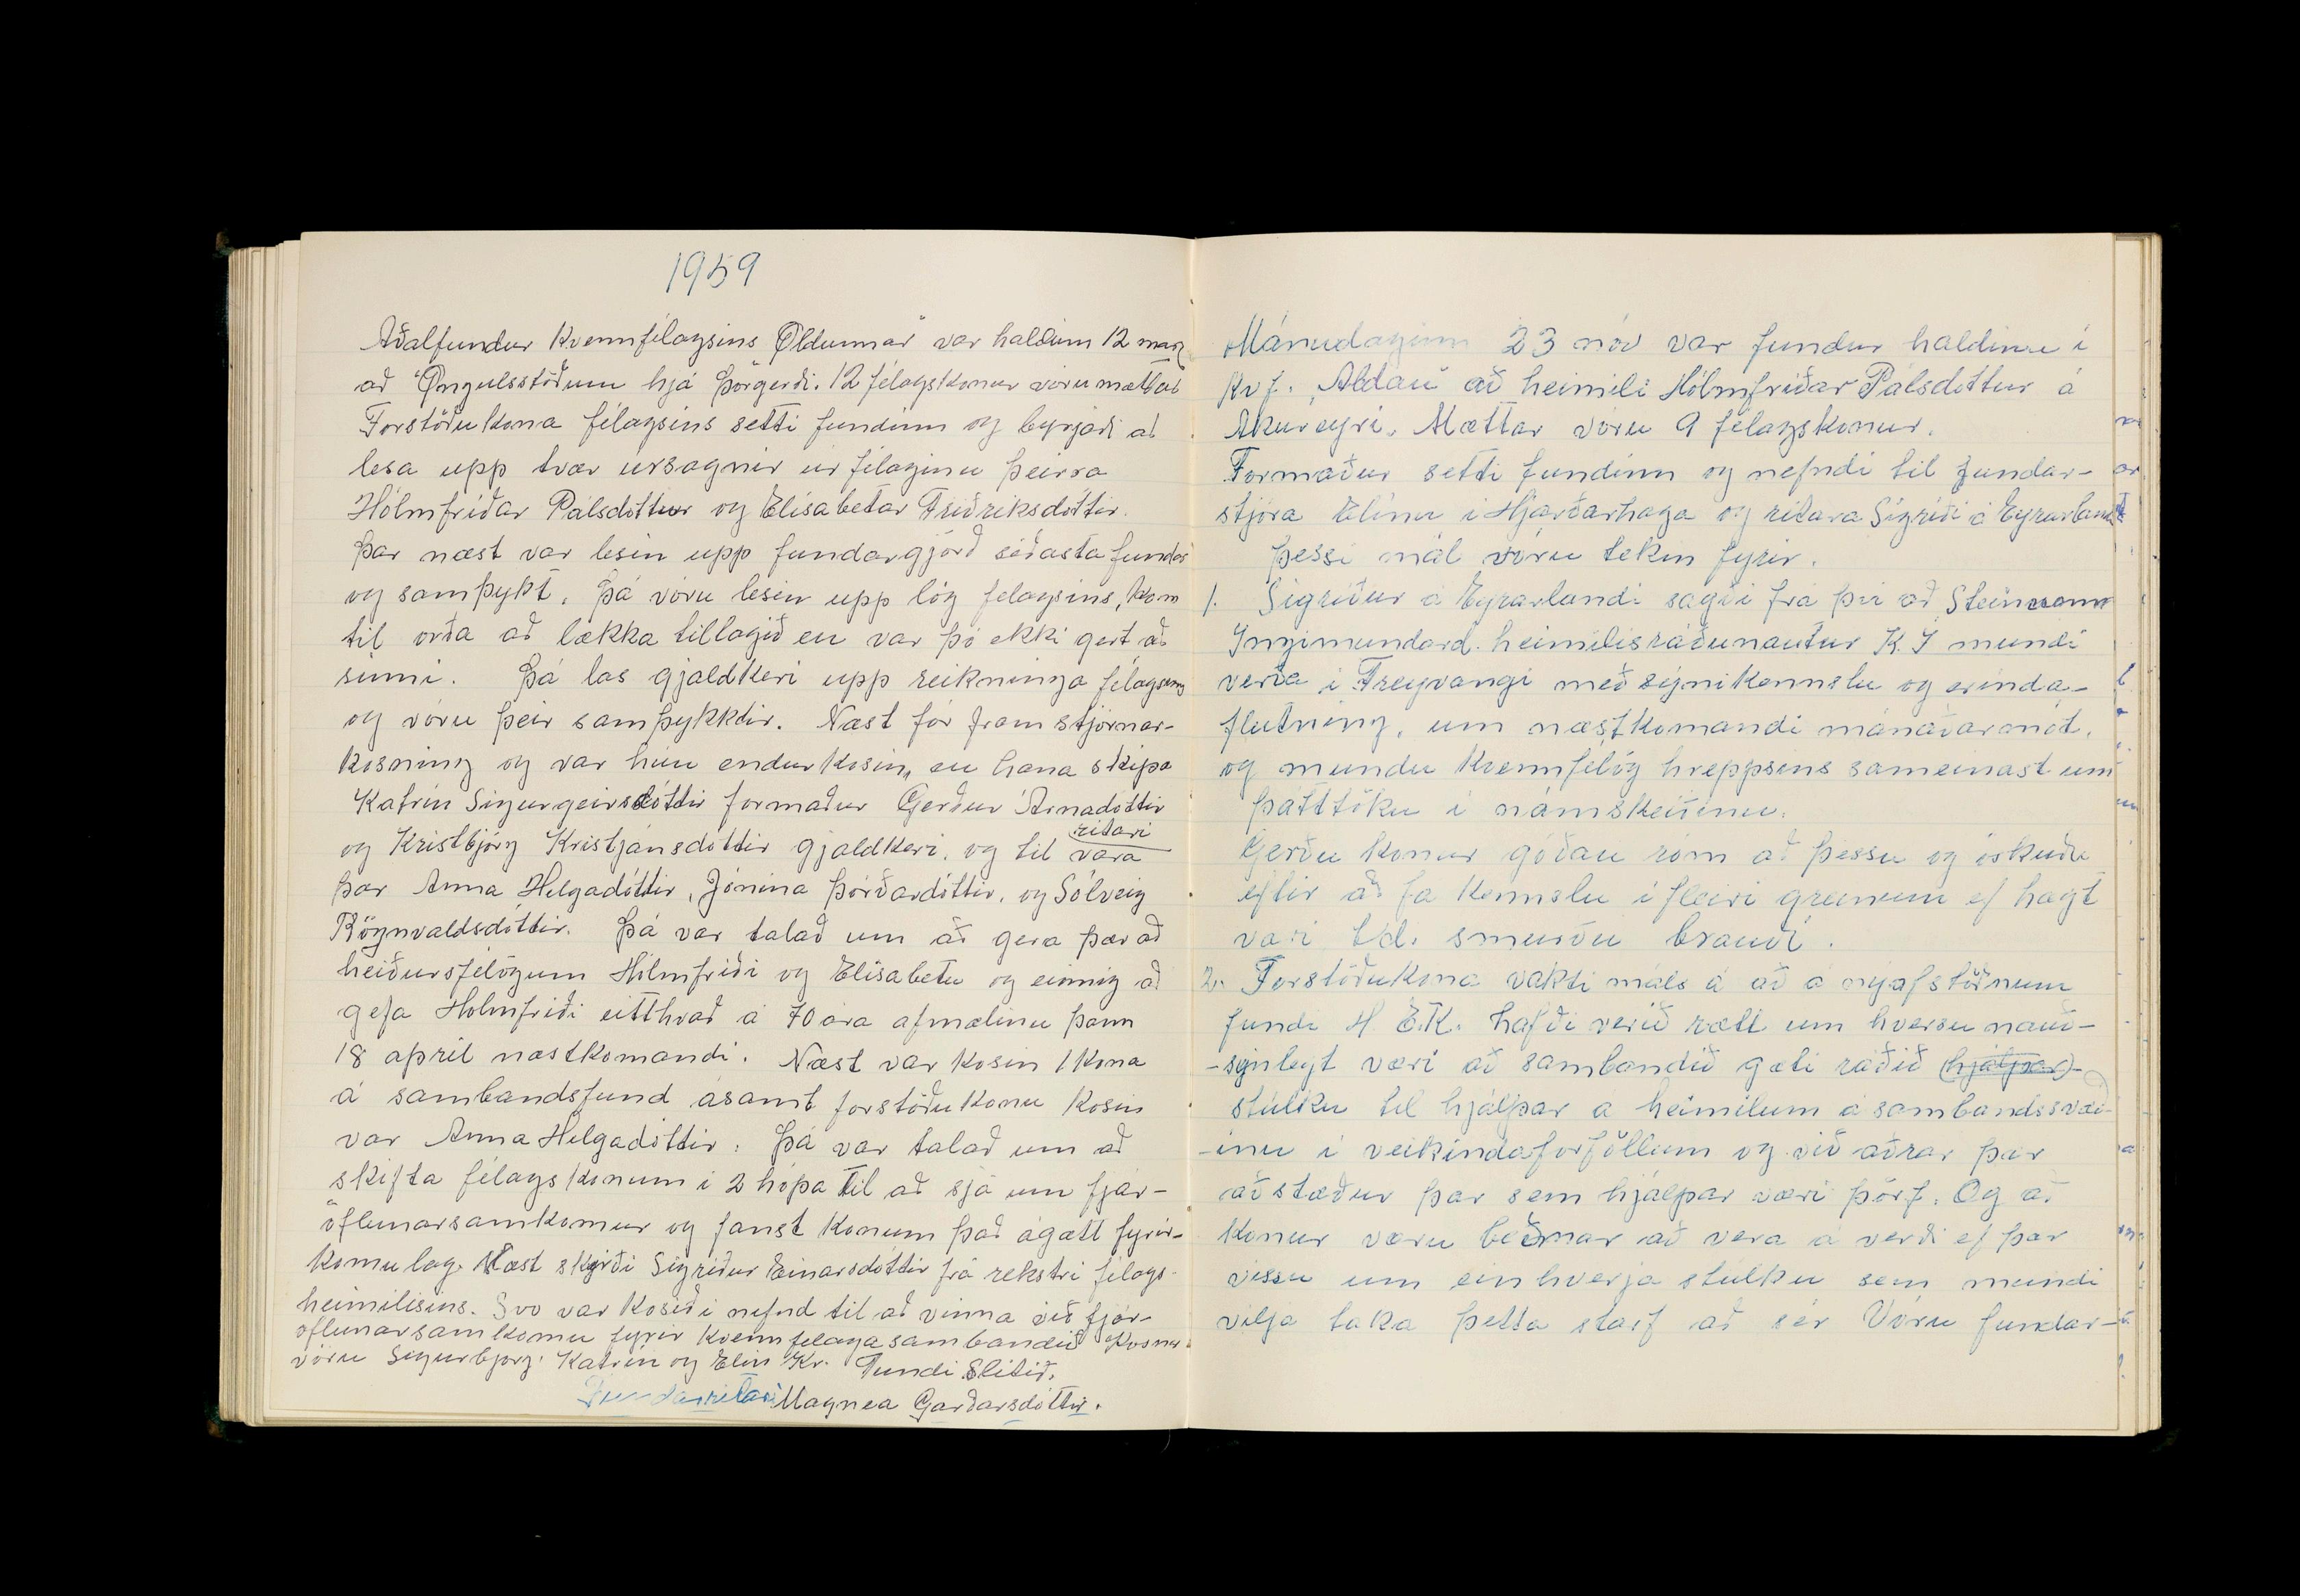 1959
Aðalfundur Kvennfélagsins Öldunnar" var haldinn 12 marz
að Öngulsstöðum hjá Þorgerði. 12 félagskonur vóru mættar
Forstöðukona félagsins setti fundinn og byrjaði að
lesa upp tvær úrsagnir úr félaginu þeirra
Hólmfríðar Pálsdóttur og Elísabetar Friðriksdóttir.
Þar næst var lesin upp fundargjörð síðasta fundar
og samþykt. Þá vóru lesin upp lög félagsins, kom
til orða að lækka tillagið en var þó ekki gert að
sinni. Þá las gjaldkeri upp reikninga félagsins
og vóru þeir samþykktir. Næst fór fram stjórnar-
kosning og var hún endurkosin, en hana skipa
Katrín Sigurgeirsdóttir formaður Gerður Árnadóttir
ritari
og Kristbjörg Kristjánsdóttir gjaldkeri. og til vara
þær Anna Helgadóttir, Jónína Þórðardóttir, og Sólveig
Rögnvaldsdóttir. Þá var talað um að gera þær að
heiðursfélögum Hólmfríði og Elísabetu og einnig að
gefa Hólmfríði eitthvað á 70 ára afmælinu þann
18 apríl næstkomandi. Næst var kosin 1 kona
á sambandsfund ásamt forstöðukonu kosin
var Anna Helgadóttir. Þá var talað um að
skifta félagskonum í 2 hópa til að sjá um fjár-
öflunarsamkomur og fanst konum það ágætt fyrir-
komulag. Næst skýrði Sigríður Einarsdóttir frá rekstri félags-
heimilisins. Svo var kosið í nefnd til að vinna við fjár-
öflunarsamkomu fyrir kvennfélagasambandið Kosnar
vóru Sigurbjörg. Katrín og Elín Kr. Fundi Slitið.
Fundarritari Magnea Garðarsdóttir.
Mánudaginn 23 nóv var fundur haldinn í
Kvf. „Aldan" að heimili Hólmfríðar Pálsdóttur á
Akureyri. Mættar vóru 9 félagskonur.
Formaður setti fundinn og nefndi til fundar-
stjóra Elínu í Hjarðarhaga og ritara Sigríði á Eyrarlandi
Þessi mál vóru tekin fyrir.
1. Sigríður á Eyrarlandi sagði frá því að Steinunn
Ingimundard. heimilisráðunautur K.Í mundi
verða í Freyvangi með sýnikennslu og erinda-
flutning, um næstkomandi mánaðarmót,
og mundu kvennfélög hreppsins sameinast um
þátttöku í námskeiðinu.
Gerðu konur góðan róm að þessu og óskuðu
eftir að fá kennslu í fleiri greinum ef hægt
væri t/d. smurðu brauði.
2. Forstöðukona vakti máls á að á nýafstöðnum
fundi H.E.K. hafði verið rætt um hversu nauð-
-synlegt væri að sambandið gæti ráðið (hjálpar)-
stúlku til hjálpar á heimilum á sambandssvæð-
-inu í veikindaforföllum og við aðrar þær
aðstæður þar sem hjálpar væri þörf. Og að
konur væru beðnar að vera á verði ef þær
vissu um einhverja stúlku sem mundi
vilja taka þetta starf að sér Vóru fundar-